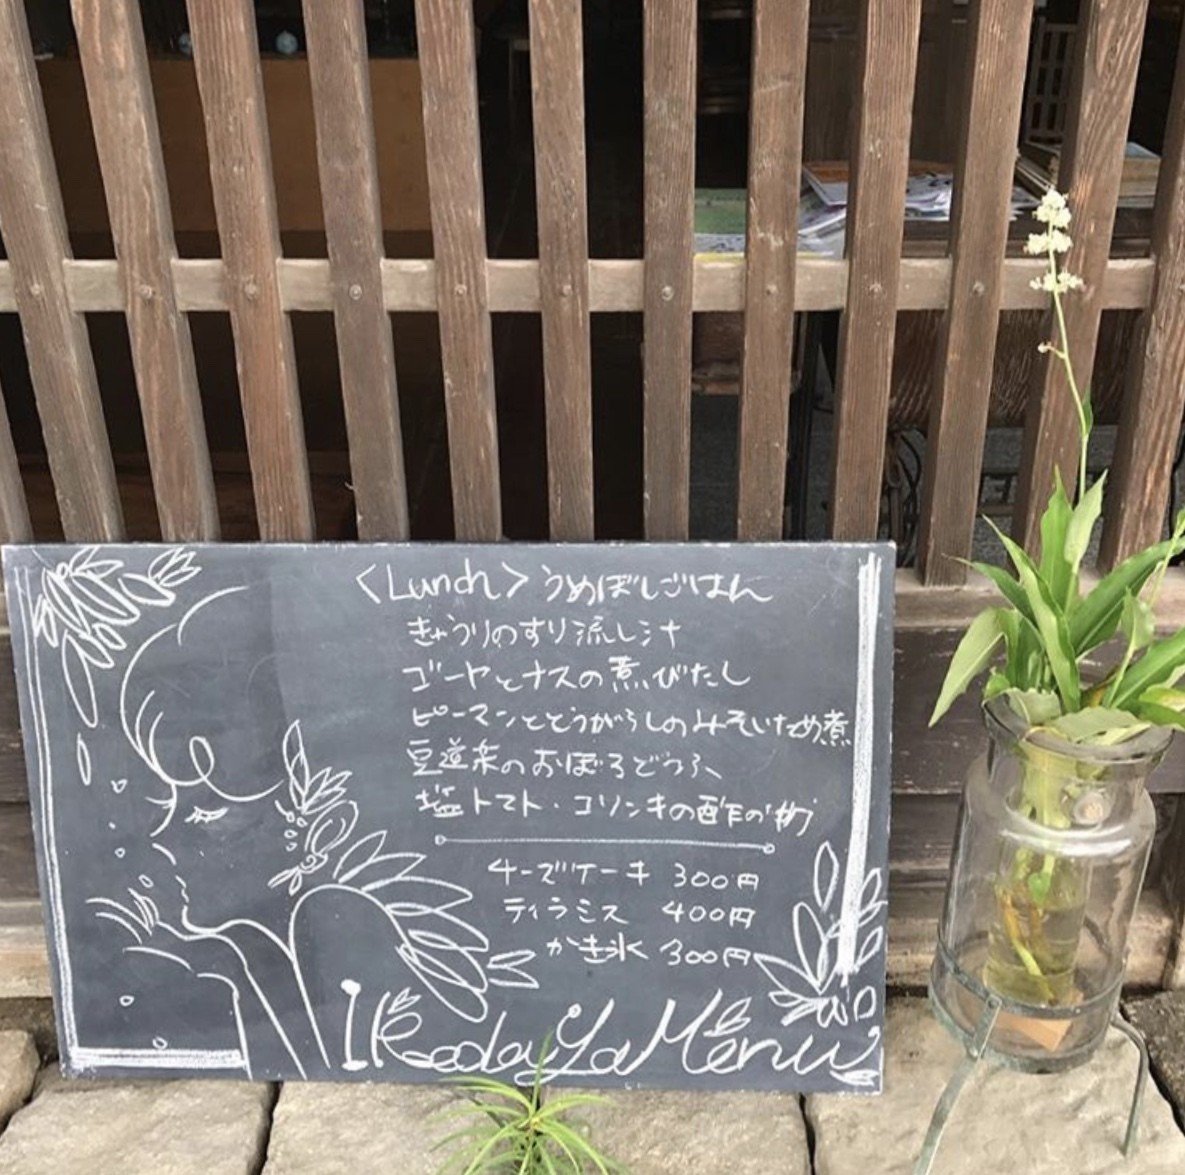 <Lunch> うめぼしごはん
きゅうりのすり流し汁
ゴーヤとナスの煮びたし
ピーマンととうがらしのみそいため煮
豆道楽のおぼろどうふ
塩トマト・コリンキの酢の物
チーズケーキ 300円
ティラミス 400円
かき氷 300円
IKedaYa Menu